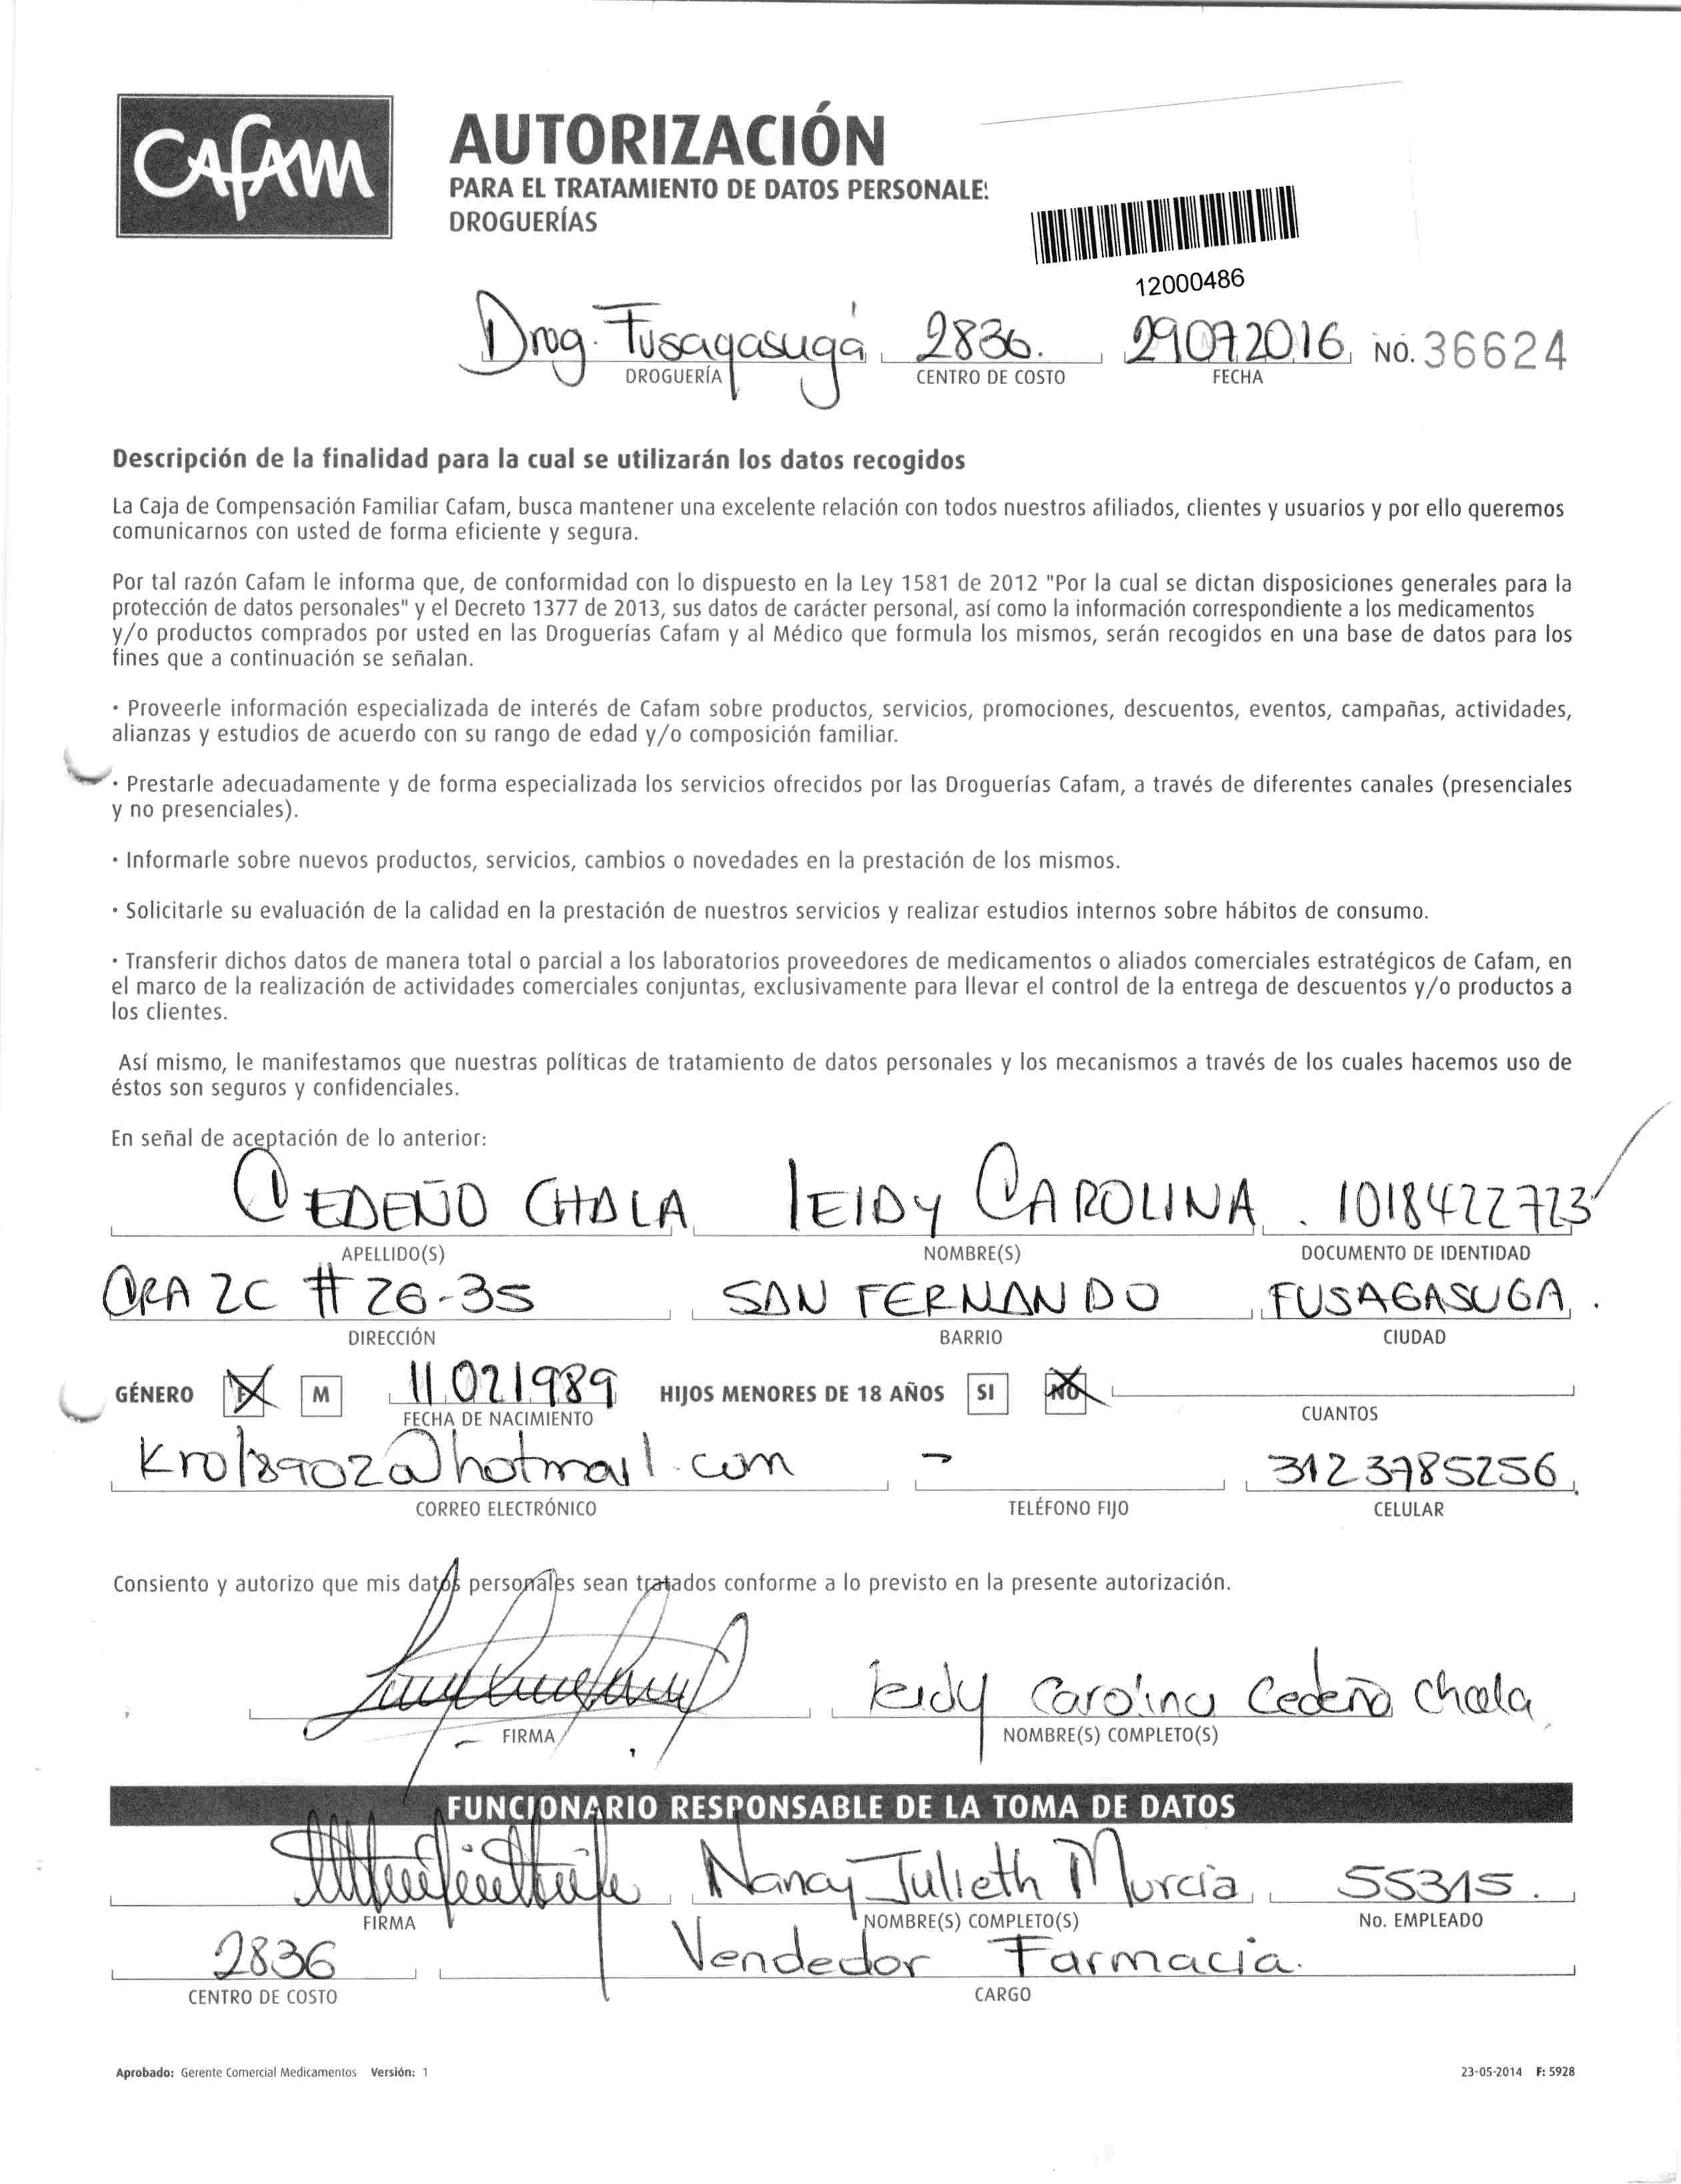 Cafam
AUTORIZACIÓN
PARA EL TRATAMIENTO DE DATOS PERSONALE
DROGUERÍAS
12000486
Drog. Fusagasugá 2836. 29072016 NO. 36624
DROGUERÍA CENTRO DE COSTO FECHA
Descripción de la finalidad para la cual se utilizarán los datos recogidos
La Caja de Compensación Familiar Cafam, busca mantener una excelente relación con todos nuestros afiliados, clientes y usuarios y por ello queremos
comunicarnos con usted de forma eficiente y segura.
Por tal razón Cafam le informa que, de conformidad con lo dispuesto en la Ley 1581 de 2012 "Por la cual se dictan disposiciones generales para la
protección de datos personales" y el Decreto 1377 de 2013, sus datos de carácter personal, así como la información correspondiente a los medicamentos
y/o productos comprados por usted en las Droguerías Cafam y al Médico que formula los mismos, serán recogidos en una base de datos para los
fines que a continuación se señalan.
· Proveerle información especializada de interés de Cafam sobre productos, servicios, promociones, descuentos, eventos, campañas, actividades,
alianzas y estudios de acuerdo con su rango de edad y/o composición familiar.
· Prestarle adecuadamente y de forma especializada los servicios ofrecidos por las Droguerías Cafam, a través de diferentes canales (presenciales
y no presenciales).
· Informarle sobre nuevos productos, servicios, cambios o novedades en la prestación de los mismos.
· Solicitarle su evaluación de la calidad en la prestación de nuestros servicios y realizar estudios internos sobre hábitos de consumo.
· Transferir dichos datos de manera total o parcial a los laboratorios proveedores de medicamentos o aliados comerciales estratégicos de Cafam, en
el marco de la realización de actividades comerciales conjuntas, exclusivamente para llevar el control de la entrega de descuentos y/o productos a
los clientes.
Así mismo, le manifestamos que nuestras políticas de tratamiento de datos personales y los mecanismos a través de los cuales hacemos uso de
éstos son seguros y confidenciales.
En señal de aceptación de lo anterior:
CEDEÑO CHALA LEIDY CAROLINA . 1018422723
APELLIDO(S) NOMBRE(S) DOCUMENTO DE IDENTIDAD
CRA 2C # 26-35 SAN FERNANDO FUSAGASUGA.
DIRECCIÓN BARRIO CIUDAD
GÉNERO F M 11021989 HIJOS MENORES DE 18 AÑOS SI NO
FECHA DE NACIMIENTO CUANTOS
krol8902@hotmail.com - 3123985256.
CORREO ELECTRÓNICO TELÉFONO FIJO CELULAR
Consiento y autorizo que mis datos personales sean tratados conforme a lo previsto en la presente autorización.
Leidy Carolina Cedeño Chala
FIRMA NOMBRE(S) COMPLETO(S)
FUNCIONARIO RESPONSABLE DE LA TOMA DE DATOS
Nancy Julieth Murcia 55315.
FIRMA NOMBRE(S) COMPLETO(S) No. EMPLEADO
2836 Vendedor Farmacia.
CENTRO DE COSTO CARGO
Aprobado: Gerente Comercial Medicamentos Versión: 1 23-05-2014 F: 5928